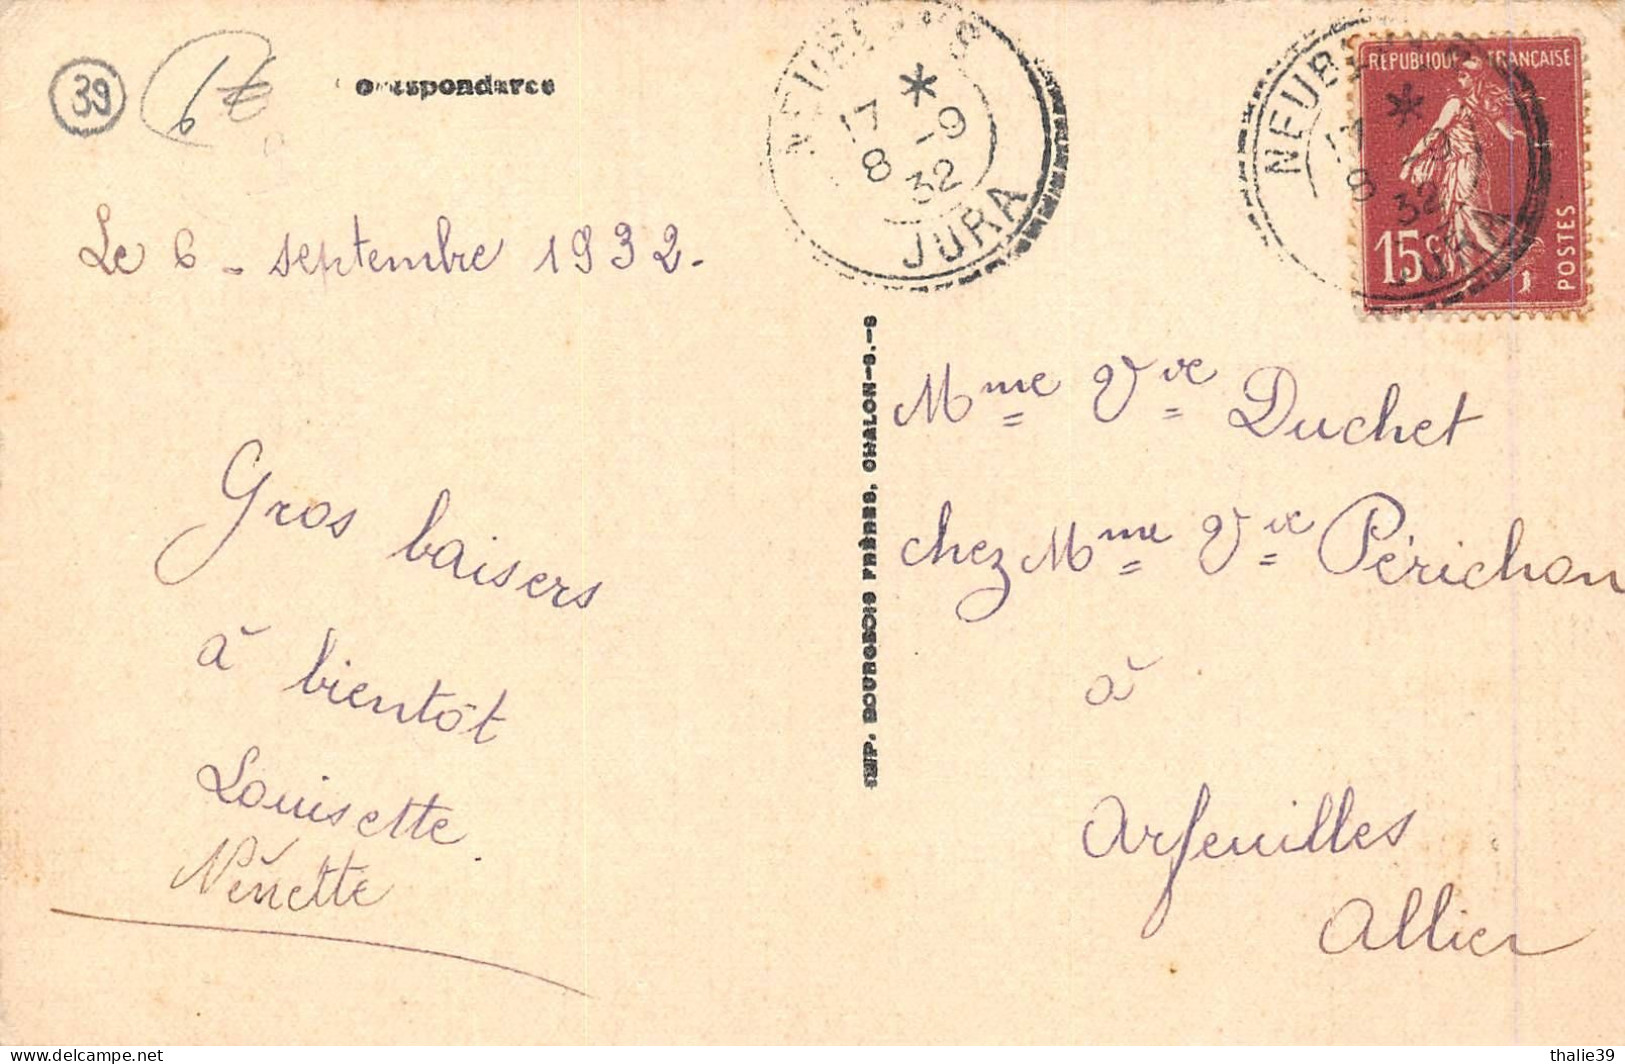 39
Correspondance
Le 6 - septembre 1932.
Gros baisers
à bientôt
Louisette.
Nénette
IMP. BOURGEOIS FRÈRES, CHALON-S.-S
NEUBLANS
*
17 -9
8 32
JURA
NEUBLANS
*
17 -9
8 32
JURA
RÉPUBLIQUE FRANÇAISE
15c
POSTES
Mme Vve Duchet
chez Mme Vve Périchon
à
Arfeuilles
Allier
delcampe.net
thalie39